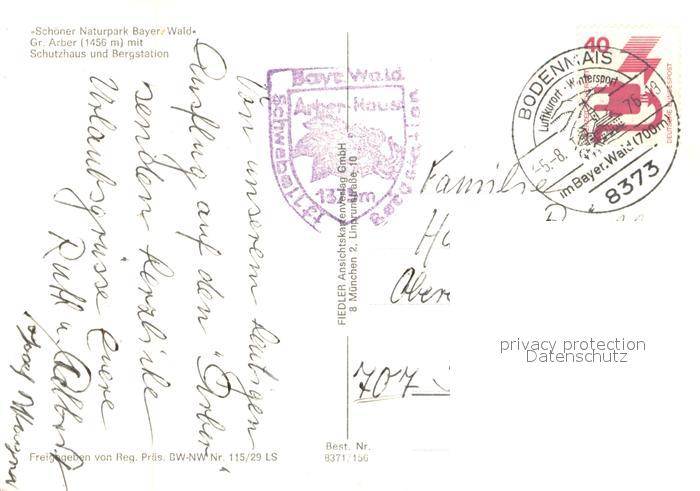 »Schöner Naturpark Bayer. Wald«
Gr. Arber (1456 m) mit
Schutzhaus und Bergstation
Von unserem heutigen
Ausflug auf den "Arber"
senden herzliche
Urlaubsgrüsse Euere
Ruth u. Adalbert
Josef
Freigegeben von Reg. Präs. BW-NW Nr. 115/29 LS
FIEDLER Ansichtskartenverlag GmbH
8 München 2, Linprunstraße 10
Best. Nr.
8371/156
Bayr. Wald
Arber-Haus
Schwebelift
Bergstation
Familie
707
40
DEUTSCHE BUNDESPOST
BODENMAIS
Luftkurort - Wintersport
-5.-8. 76.-18
im Bayer. Wald (700m)
8373
privacy protection
Datenschutz